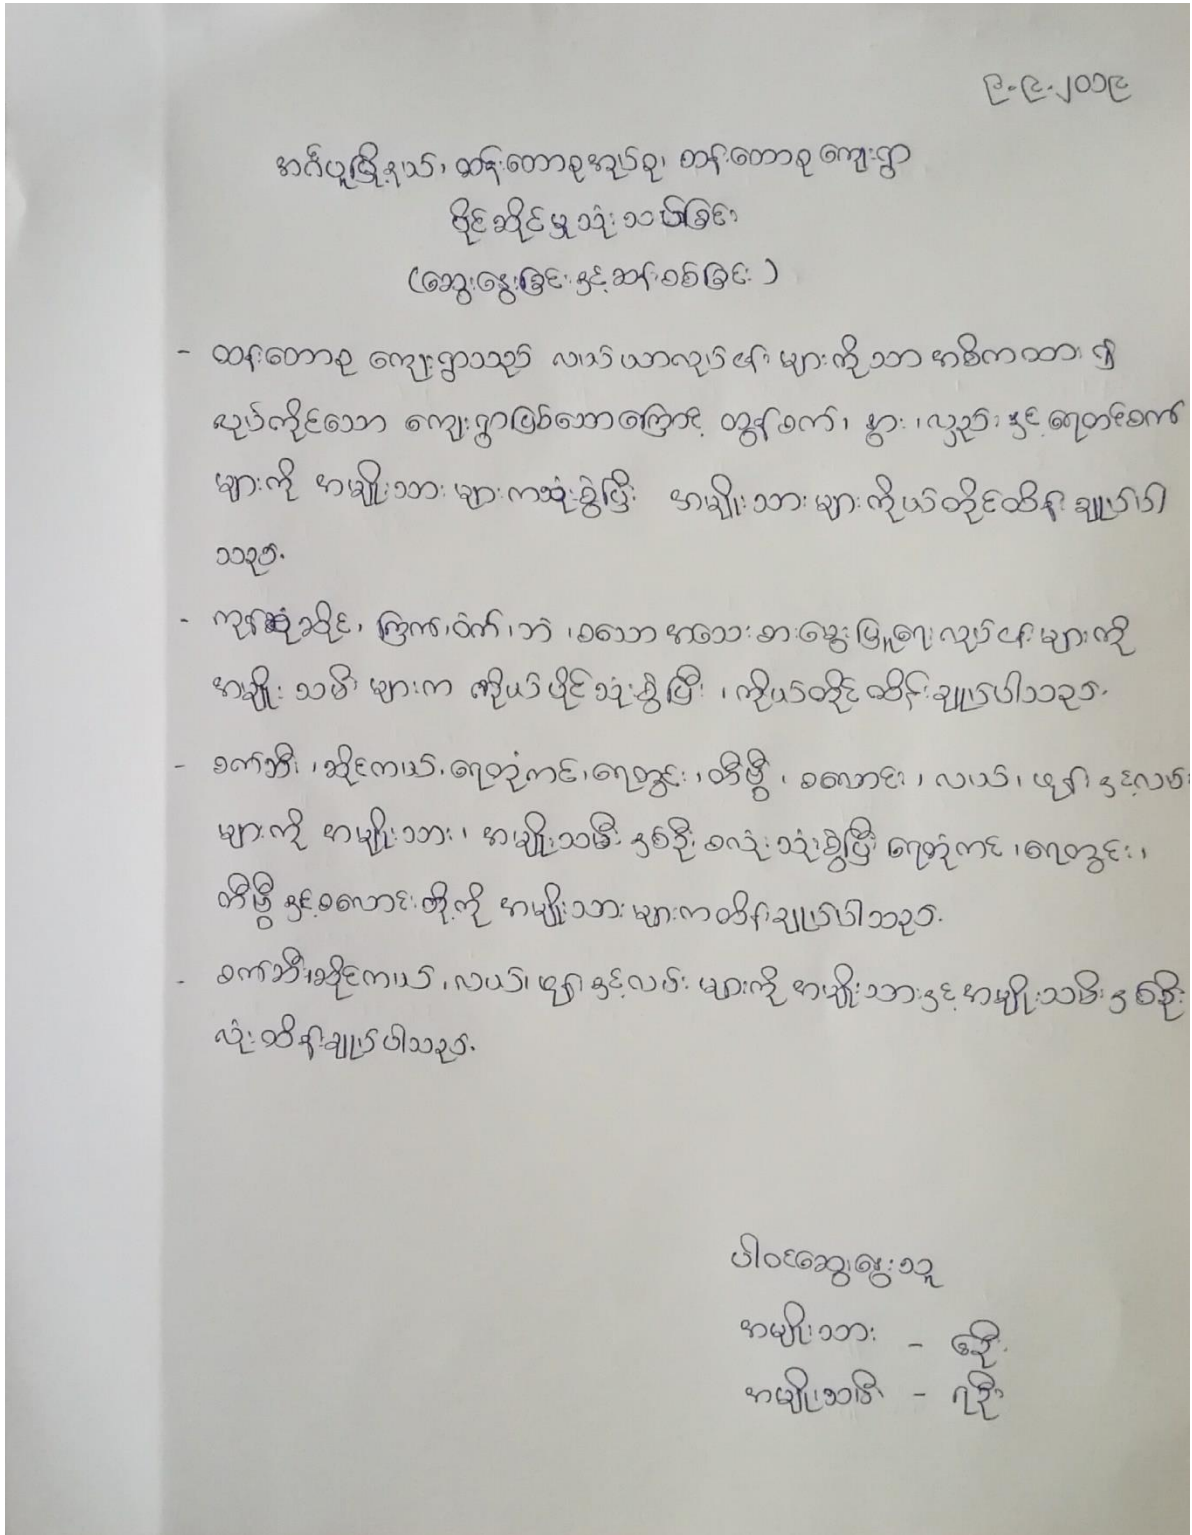 ၉.၉.၂၀၁၉
အင်္ဂပူမြို့နယ်၊ ထန်းတောစုအုပ်စု၊ ထန်းတောစုကျေးရွာ
ပိုင်ဆိုင်မှုသုံးသပ်ခြင်း
(ဆွေးနွေးခြင်းနှင့်ဆန်းစစ်ခြင်း)
- ထန်းတောစု ကျေးရွာသည် လယ်ယာလုပ်ငန်းများကိုသာ အဓိကထား၍
လုပ်ကိုင်သော ကျေးရွာဖြစ်သောကြောင့် ထွန်စက်၊ နွား၊ လှည်းနှင့် ရေတင်စက်
များကို အမျိုးသားများကသုံးစွဲပြီး အမျိုးသားများကိုယ်တိုင်ထိန်းချုပ်ပါ
သည်.
- ကုန်စုံဆိုင်၊ ကြက်၊ ဝက်၊ ဘဲ၊ စသော အသေးစားမွေးမြူရေးလုပ်ငန်းများကို
အမျိုးသမီးများက ကိုယ်ပိုင်သုံးစွဲပြီး၊ ကိုယ်တိုင်ထိန်းချုပ်ပါသည်.
- စက်ဘီး၊ ဆိုင်ကယ်၊ ရေတုံကင်၊ ရေတွင်း၊ တီဗွီ၊ စလောင်း၊ လယ်၊ ဖုန်းနှင့်လမ်း
များကို အမျိုးသား၊ အမျိုးသမီး နှစ်ဦးစလုံးသုံးစွဲပြီး ရေတုံကင်၊ ရေတွင်း၊
တီဗွီနှင့်စလောင်းတို့ကို အမျိုးသားများကထိန်းချုပ်ပါသည်.
- စက်ဘီး၊ ဆိုင်ကယ်၊ လယ်၊ ဖုန်းနှင့်လမ်းများကို အမျိုးသားနှင့်အမျိုးသမီးနှစ်ဦး
လုံးထိန်းချုပ်ပါသည်.
ပါဝင်ဆွေးနွေးသူ
အမျိုးသား - ၆ဦး
အမျိုးသမီး - ၇ဦး